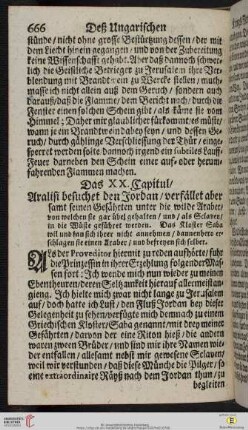 666 Deß Ungarischen
stünde / nicht ohne grosse Bestürtzung dessen / der mit
dem Liecht hinein gegangen / und von der Zubereitung
keine Wissenschafft gehabt. Aber daß dannoch schwer-
lich die Geistliche Betrieger zu Jerusalem ihre Ver-
blendung mit Brandtwein zu Wercke stellen / muth-
masse ich nicht allein auß dem Geruch / sondern auch
daraus / daß die Flamme / dem Bericht nach / durch die
Fenster einen solchen Schein gibt / als käme sie vom
Himmel: Daher mit glaublicher fürkommt es müste
wann je ein Brandtwein dabey seyn / und dessen Ge-
ruch / durch gählinge Verschliessung der Thür / einge-
sperret werden solte dannoch irgend ein subtiles Lauff-
Feuer darneben den Schein einer auf- oder herun-
fahrenden Flammen machen.
Das XX. Capitul /
Aralisi besuchet den Jordan / verfället aber
samt seinen Gefährten unter die wilde Araber /
von welchen sie gar übel gehalten / und / als Sclaven /
in die Wüste geführet werden. Das Kloster Saba
will und kan sich ihrer nicht annehmen / dannenhero er-
schlagen sie einen Araber / und befreyen sich selber.
Als der Proveditore hiermit zu reden aufhörte / fuhr
die Prinzessin in ihrer Erzehlung folgender Ma-
sen fort: Ich wende mich nun wieder zu meinen
Ebentheuren / deren Seltzamkeit hierauf allermeist an-
gieng. Ich hielte mich zwar nicht lange zu Jerusalem
auf / doch hatte ich Lust / den Fluß Jordan bey dieser
Gelegenheit zu sehen / verfügte mich demnach zu einem
Griechischen Kloster / Saba genannt / mit drey meiner
Gefährten / davon der eine Riton hieß / die andern
waren zween Brüder / und sind mir ihre Namen wie-
der entfallen / allesamt nebst mir gewesene Sclaven /
weil wir verstunden / daß diese Münche die Pilger / so
eine extraordinaire Räyß nach dem Jordan thun / zu
begleiten